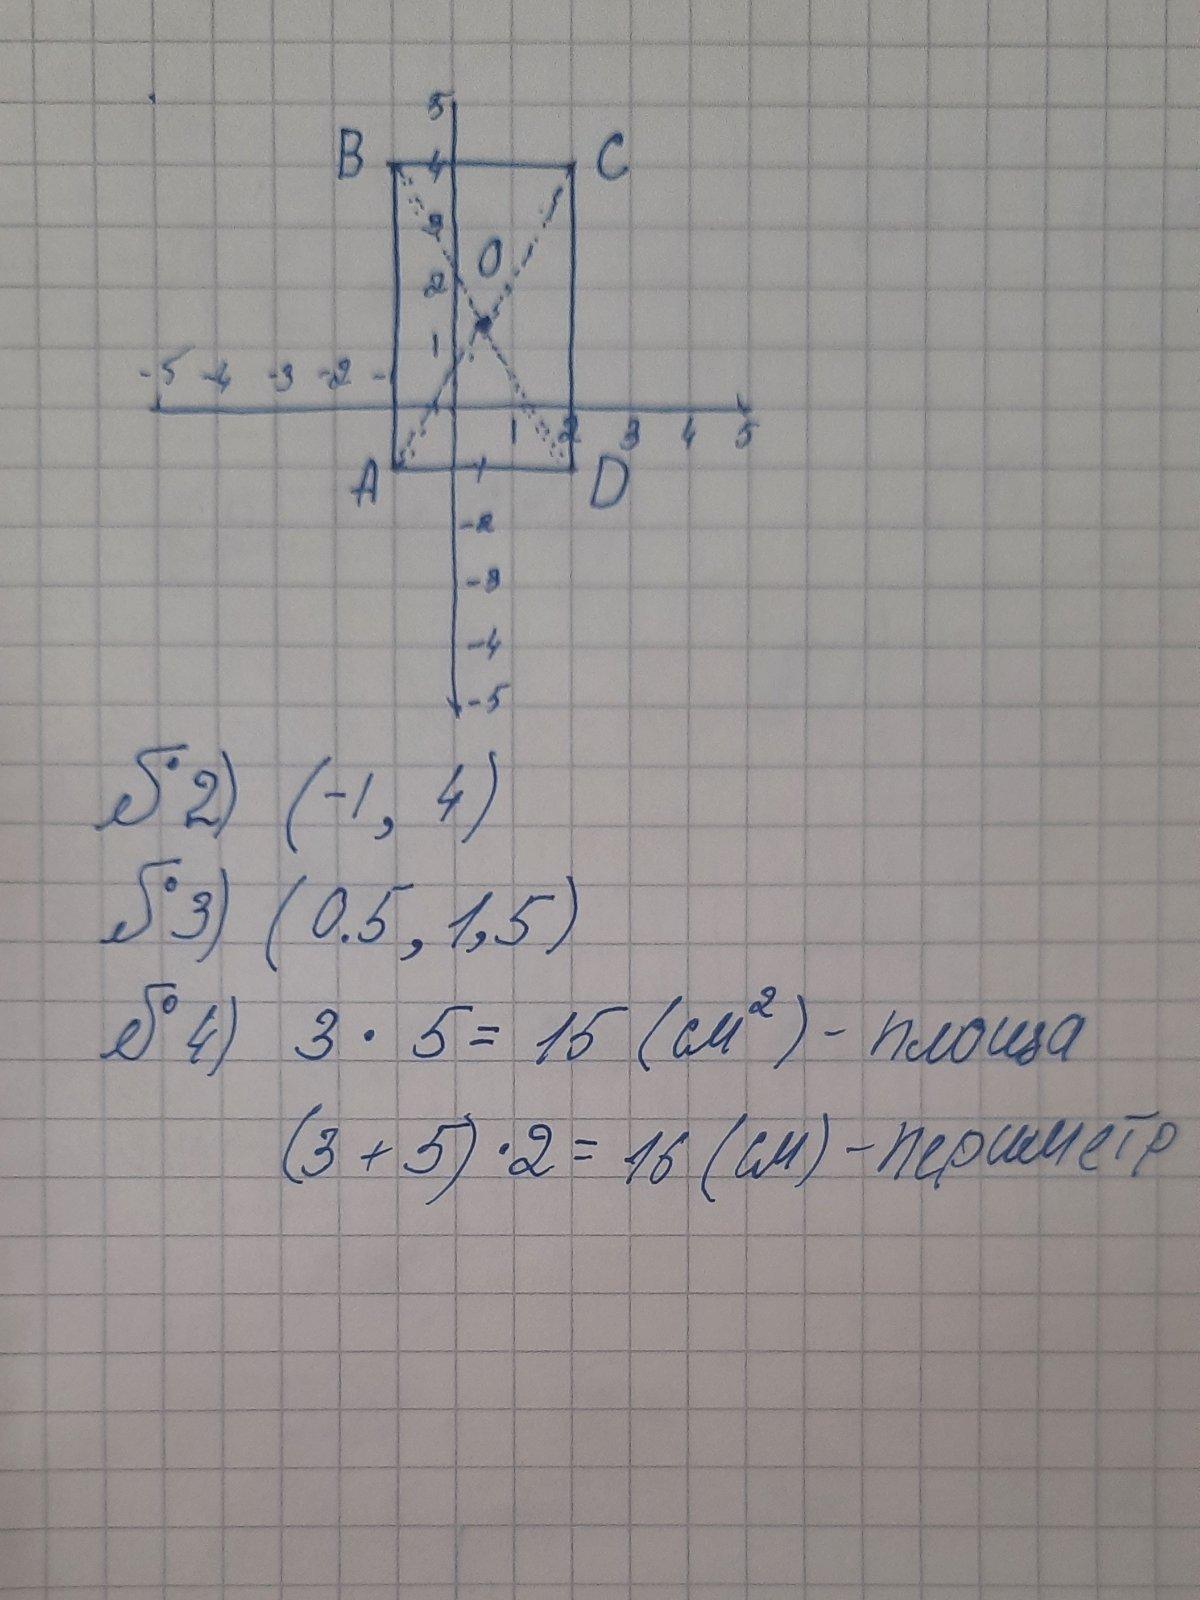 5
B 4 C
3
O
2
1
-5 -4 -3 -2 -
1 2 3 4 5
A -1 D
-2
-3
-4
-5
№2) (-1, 4)
№3) (0.5, 1,5)
№4) 3 · 5 = 15 (см²) - площа
(3 + 5) · 2 = 16 (см) - периметр